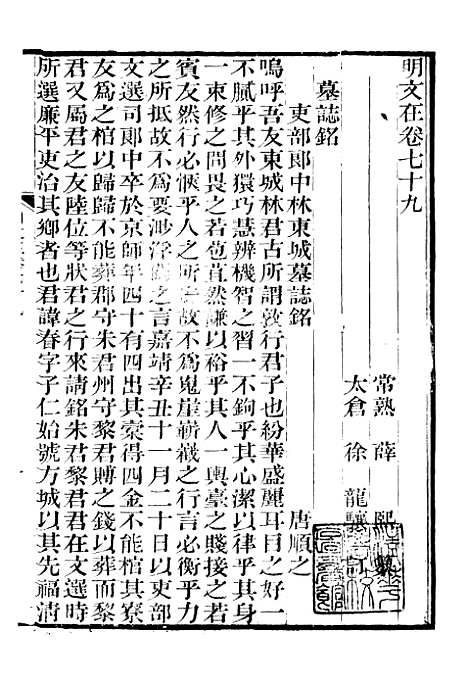 明文在卷七十九
常熟 薛 熙
太倉 徐 龍驤
墓誌銘
吏部郎中林東城墓誌銘
唐順之
嗚呼吾友東城林君古所謂敦行君子也紛華盛麗耳目之好一
不膩乎其外獧巧慧辨機智之習一不鉤乎其心潔以律乎其身
一束修之問畏之若苞苴然謙以裕乎其人一輿臺之賤接之若
賓友然必愜乎人之所
故不為嵬崖嶄巉之行言必衡乎力
之所抵故不為要渺浮
之言嘉靖辛丑十一月二十日以吏部
文選司郎中卒於京師年四十有四出其橐得四金不能棺其寮
友為之棺以歸歸不能葬郡守朱君州守黎君賻之錢以葬而黎
君又屬君之友陸位等狀君之行來請銘朱君黎君君在文選時
所選廉平吏治其鄉者也君諱春字子仁始號方城以其先福清